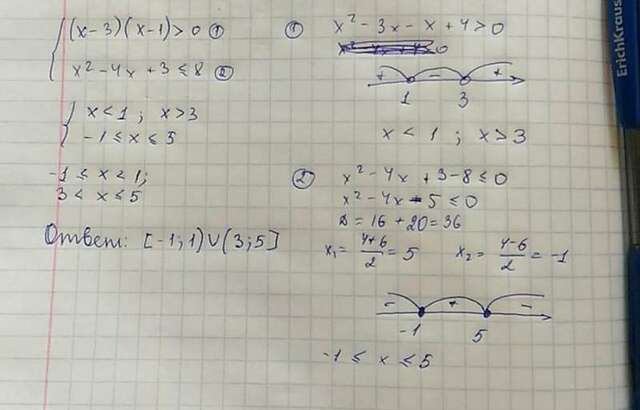 (x-3)(x-1)>0 ①
x²-4x+3≤8 ②
x<1; x>3
-1≤x≤5
-1≤x<1;
3<x≤5
Ответ: [-1;1)∪(3;5]
① x²-3x-x+4>0
+ - +
1 3
x<1; x>3
② x²-4x+3-8≤0
x²-4x-5≤0
D=16+20=36
x₁=(4+6)/2=5 x₂=(4-6)/2=-1
- + -
-1 5
-1≤x≤5
ErichKraus